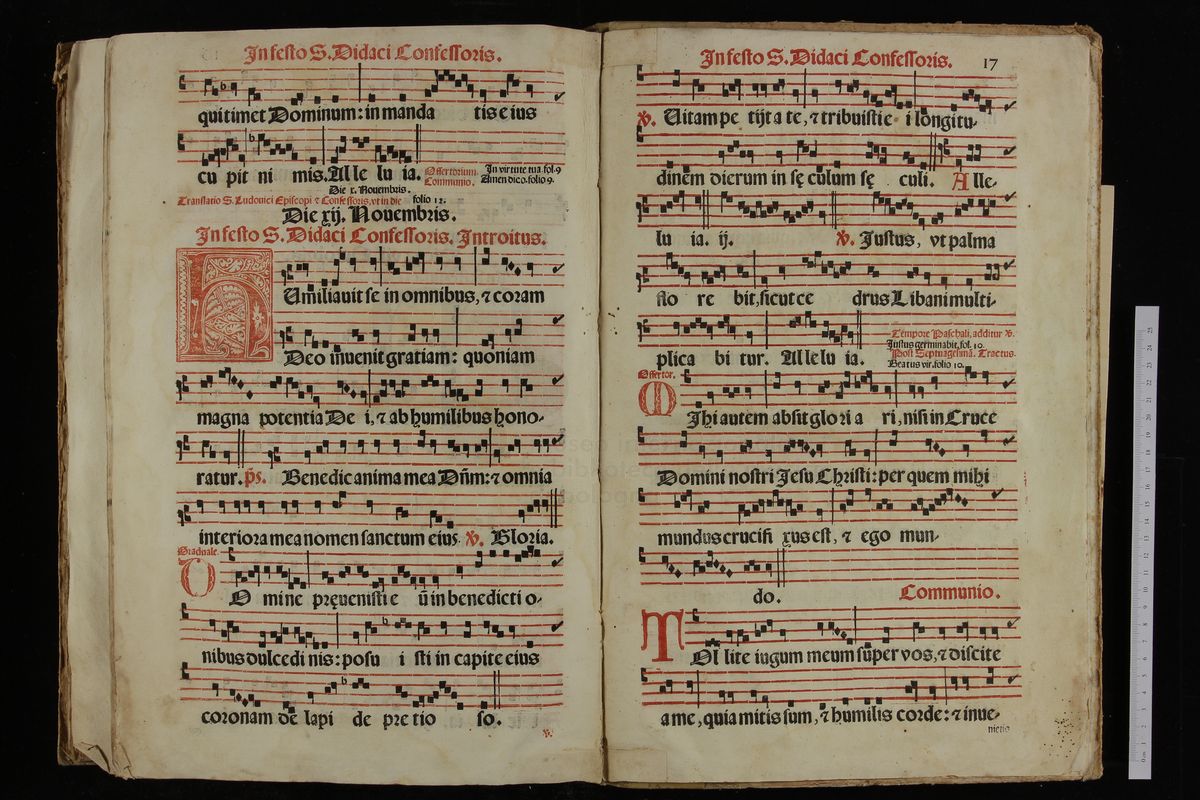 In festo S. Didaci Confessoris.
qui timet Dominum: in manda tis e ius
cu pit ni mis. Al le lu ia. Offertorium. In virtute tua. fol. 9
Communio. Amen dico. folio 9.
Die x. Nouembris.
Translatio S. Ludouici Episcopi & Confessoris, vt in die folio 12.
Die xij. Nouembris.
In festo S. Didaci Confessoris. Introitus.
HUmiliauit se in omnibus, & coram
Deo inuenit gratiam: quoniam
magna potentia De i, & ab humilibus hono-
ratur. ps. Benedic anima mea Dñm: & omnia
interiora mea nomen sanctum eius. V. Gloria.
Graduale.
DO mine pręuenisti e ū in benedicti o-
nibus dulcedi nis: posu i sti in capite eius
coronam de lapi de pre tio so.
V.
In festo S. Didaci Confessoris. 17
V. Uitam pe tijt a te, & tribuisti e i longitu-
dinem dierum in sę culum sę culi. Alle-
lu ia. ij. V. Justus, vt palma
flo re bit, sicut ce drus Libani multi-
plica bi tur. Al le lu ia. Tempore Paschali, additur V.
Justus germinabit, fol. 10.
Post Septuagesimā. Tractus.
Beatus vir. folio 10.
Offertor.
MIhi autem absit glo ri a ri, nisi in Cruce
Domini nostri Jesu Christi: per quem mihi
mundus crucifi xus est, & ego mun-
do. Communio.
TOl lite iugum meum super vos, & discite
a me, quia mitis sum, & humilis corde: & inue-
nietis